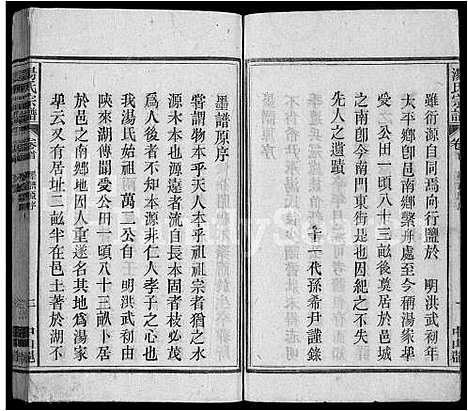 湯氏宗譜
卷首
雖衍源自同爲向行鹽於　明洪武初年
太平鄉卽邑南鄉繫舟處至今稱湯家
愛公田一頃八十三畝後奠居於邑城
之南卽今南門東街是也因紀之不失
先人之遺蹟
十一代孫希尹謹錄
墨譜原序
嘗謂物本乎天人本乎祖祖宗者猶之水
源木本也源遠者流自長本固者枝必茂
爲人後者不知本源非仁人孝子之心也
我湯氏始祖萬三公自　明洪武初由
陝來湖傳聞受公田一頃八十三畝
於邑之南鄉地因人重遂名其地爲湯家
垏云又有居址二畝半在邑土著於湖不
湯氏宗譜
卷首
墨譜原序
二
中山